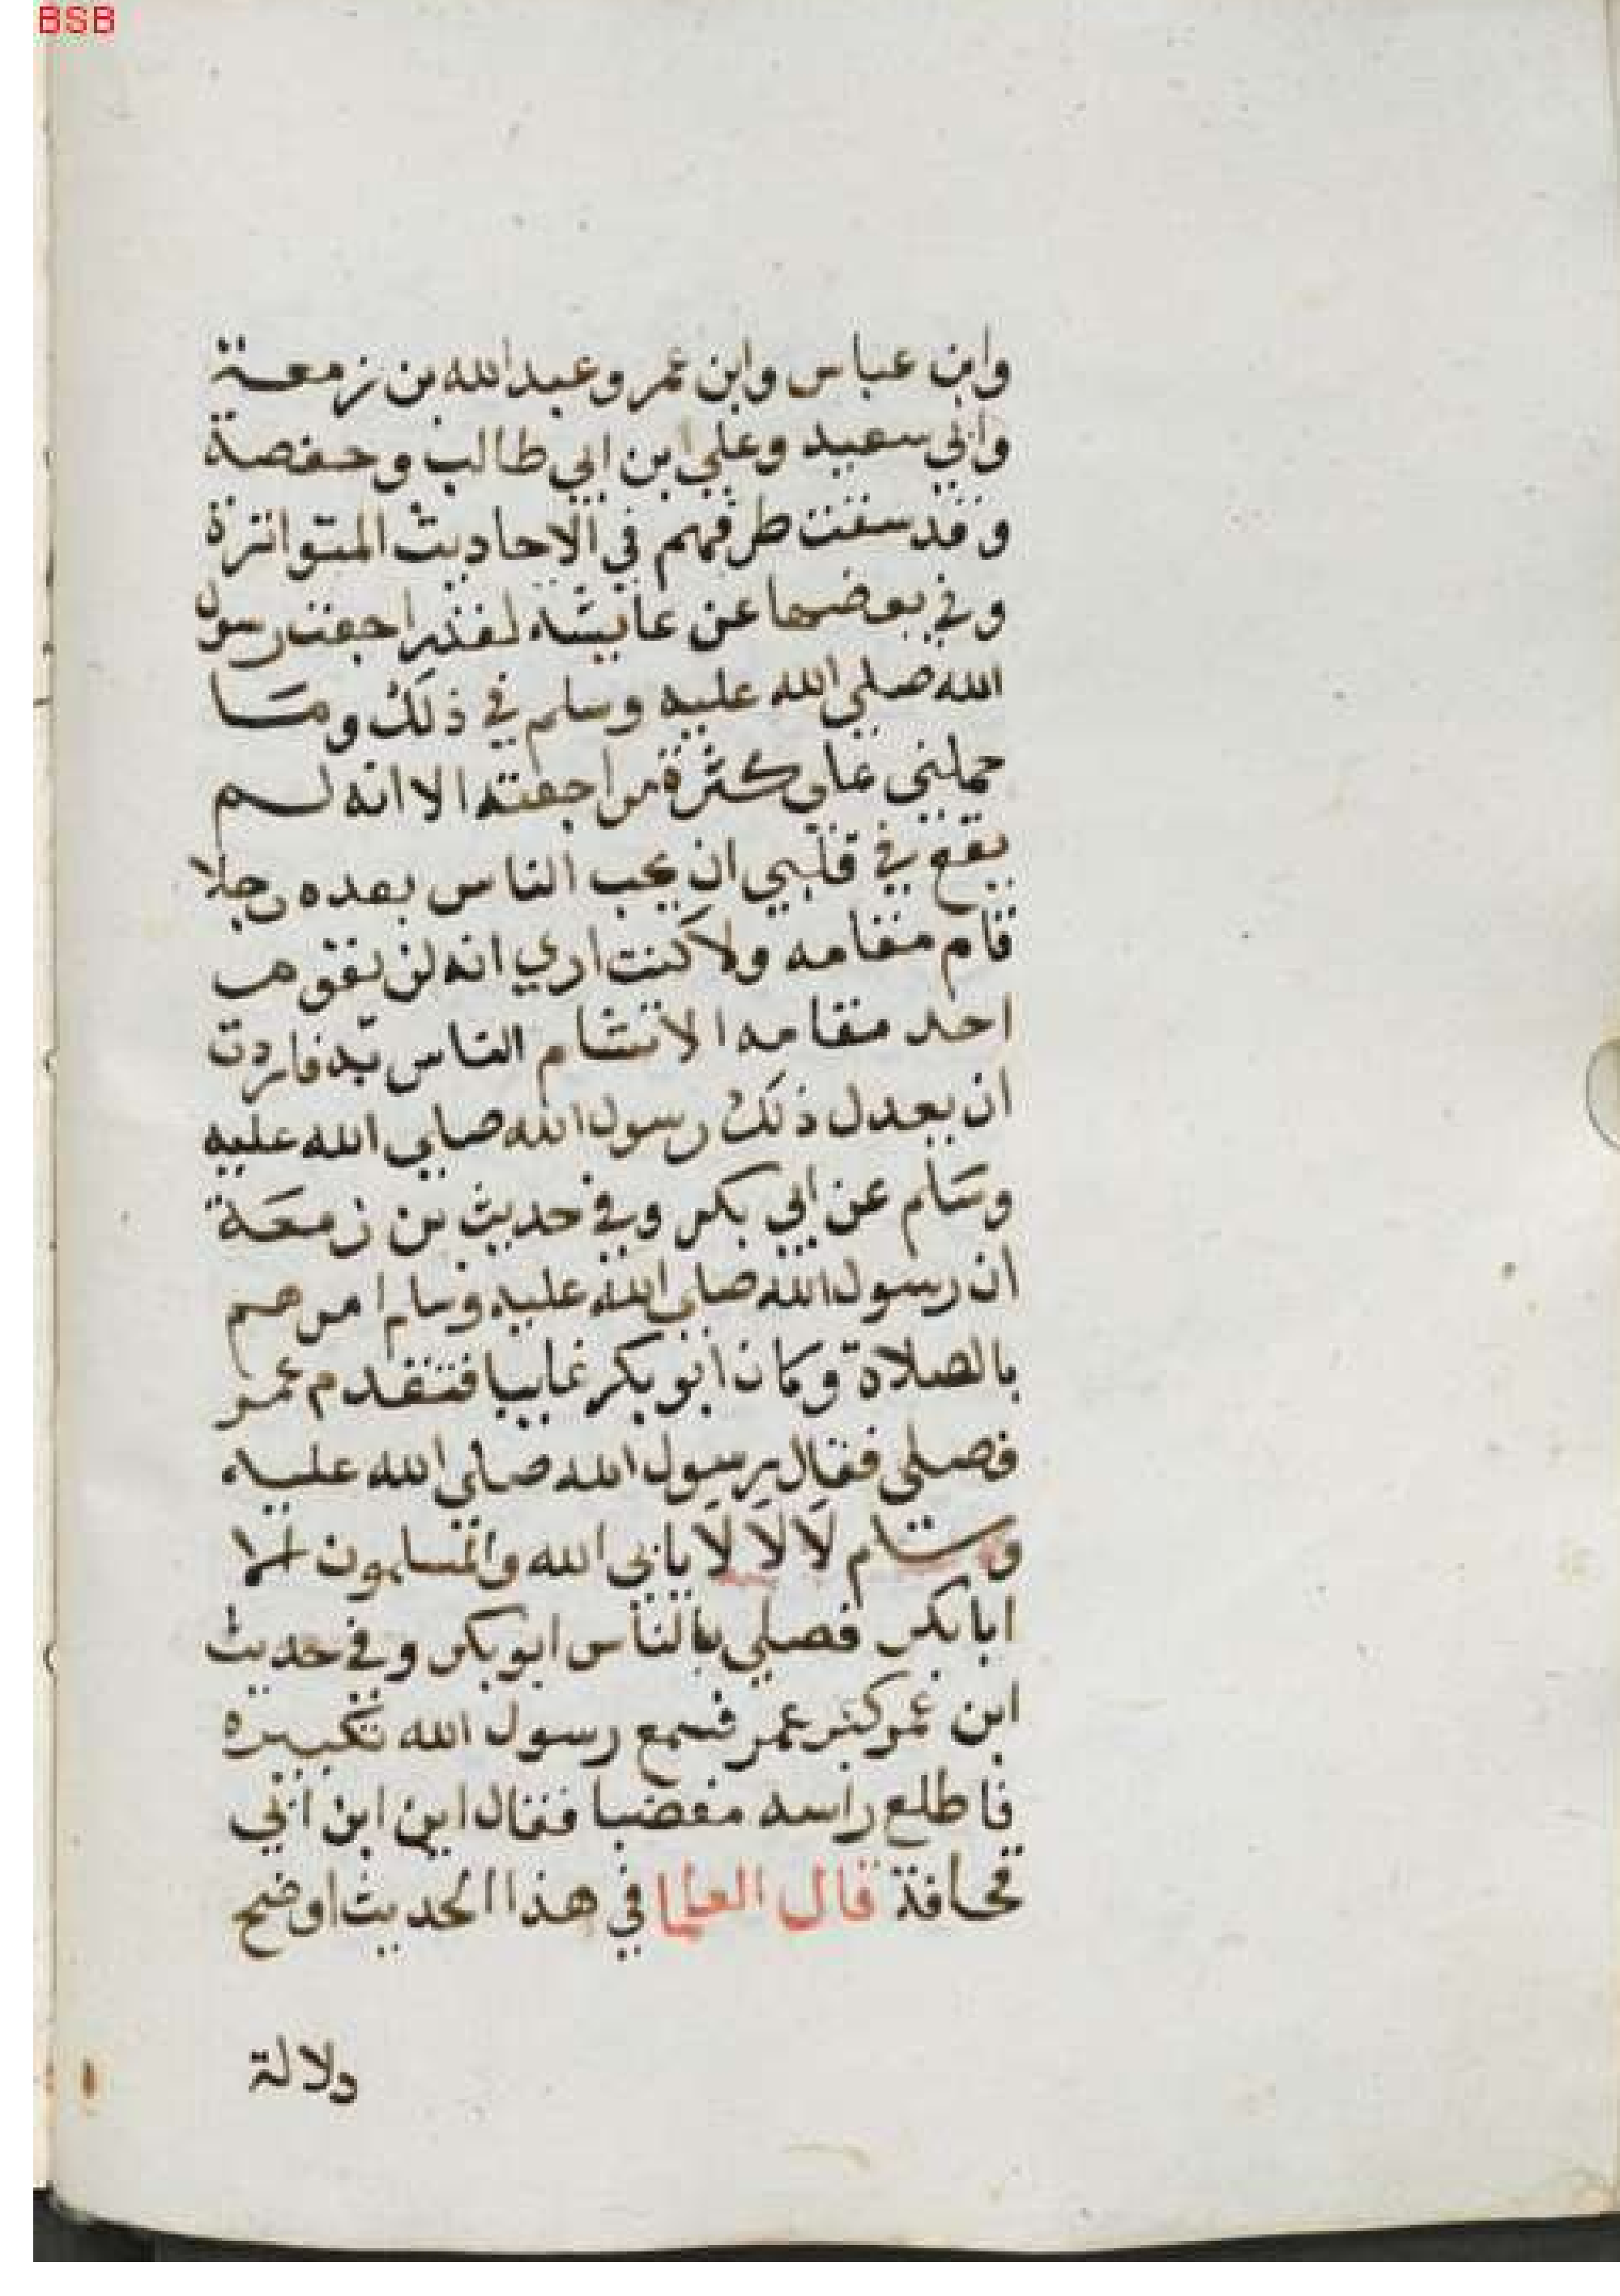 BSB
وابن عباس وابن عمر وعبد الله بن زمعة
وابي سعيد وعلي ابن ابي طالب وحفصة
وقد سقت طرقهم في الاحاديث المتواترة
وفي بعضها عن عايشة لقد راجعت رسول
الله صلي الله عليه وسلم في ذلك وما
حملني علي كثرة مراجعته الا انه لم
يقع في قلبي ان يحب الناس بعده رجلا
قام مقامه ولا كنت اري انه لن يقوم
احد مقامه الا تشام الناس به فاردت
ان يعدل ذلك رسول الله صلي الله عليه
وسلم عن ابي بكر وفي حديث بن زمعة
ان رسول الله صلي الله عليه وسلم امرهم
بالصلاة وكان ابو بكر غايبا فتقدم عمر
فصلي فقال رسول الله صلي الله عليه
وسلم لا لا لا يابي الله والمسلمون الا
ابا بكر فصلي بالناس ابو بكر وفي حديث
ابن عمر كبر عمر فسمع رسول الله تكبيره
فاطلع راسه مغضبا فقال اين ابن ابي
قحافة قال العلما في هذا الحديث اوضح
دلالة